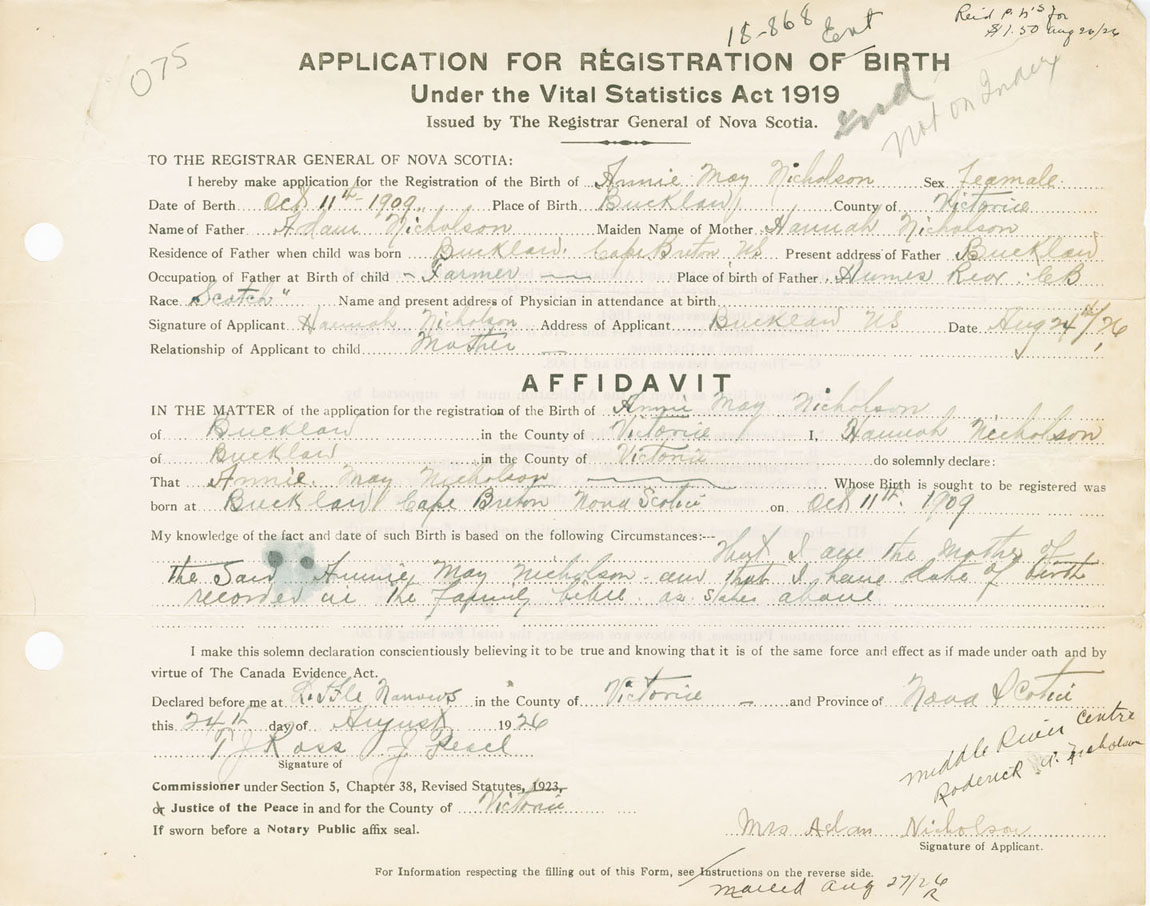 18-868 Ent
$1.50 Aug 26/26
075
APPLICATION FOR REGISTRATION OF BIRTH
Under the Vital Statistics Act 1919
Issued by The Registrar General of Nova Scotia.
Not on Index
TO THE REGISTRAR GENERAL OF NOVA SCOTIA:
I hereby make application for the Registration of the Birth of Annie May Nicholson Sex Feamale
Date of Berth Oct 11th 1909 Place of Birth Bucklaw County of Victoria
Name of Father Adam Nicholson Maiden Name of Mother Hannah Nicholson
Residence of Father when child was born Bucklaw. Cape Breton NS Present address of Father Bucklaw
Occupation of Father at Birth of child Farmer Place of birth of Father Humes CB
Race Scotch" Name and present address of Physician in attendance at birth
Signature of Applicant Hannah Nicholson Address of Applicant Bucklaw NS Date Aug 24th/26
Relationship of Applicant to child Mother
AFFIDAVIT
IN THE MATTER of the application for the registration of the Birth of Annie May Nicholson
of Bucklaw in the County of Victoria I, Hannah Nicholson
of Bucklaw in the County of Victoria do solemnly declare:
That Annie May Nicholson Whose Birth is sought to be registered was
born at Bucklaw Cape Breton Nova Scotia on Oct 11th. 1909
My knowledge of the fact and date of such Birth is based on the following Circumstances:--- that I am the Mother of
the Said Annie May Nicholson and that I have date of birth
recorded in the family bible as States above
I make this solemn declaration conscientiously believing it to be true and knowing that it is of the same force and effect as if made under oath and by
virtue of The Canada Evidence Act.
Declared before me at Little Narrows in the County of Victoria and Province of Nova Scotia
this 24th day of August 1926
Ross J. Peace
Signature of
Middle River Centre
Roderick A. Nicholson
Commissioner under Section 5, Chapter 38, Revised Statutes, 1923,
or Justice of the Peace in and for the County of Victoria
If sworn before a Notary Public affix seal.
Mrs Adam Nicholson
Signature of Applicant.
For Information respecting the filling out of this Form, see Instructions on the reverse side.
mailed Aug 27/26
R